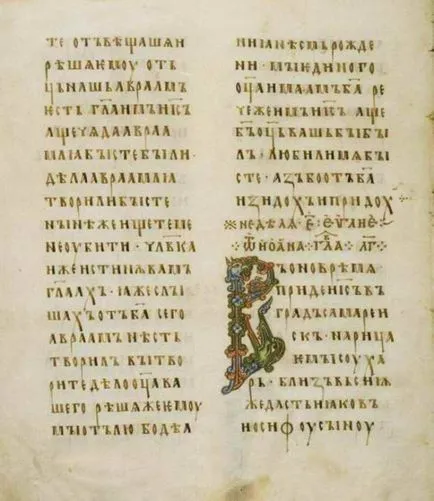 те отъвѣщашѧ и
рѣшѧ ѥмоу оть
ць нашь авраамъ
ѥсть гл҃а имъ и҃с
аще чѧда авраа
млꙗ бысте были ·
дѣла авраамлꙗ
творили бысте
нынѣ же ищете ме
не оубити · чл҃вка
иже истинѫ вамъ
гл҃аахъ · ѭже слы
шахъ отъ б҃а сего
авраамъ нѣсть
творилъ вы тво
рите дѣло оц҃а ва
шего рѣшѧ же ѥмоу
мы отъ любодѣа
ниꙗ нѣсмъ рожде
ни · мы ѥдиного
оц҃а имамъ б҃а ре
че же имъ и҃с аще
б҃ъ оц҃ь вашь би бы
лъ · любили мѧ бы
сте · азъ бо отъ б҃а
изидохъ и придохъ
※ недѣлꙗ · е҃ · еѵ҃лие ·
ѿ иоана · гл҃а · л҃г
Въ оно врѣмѧ
приде и҃с въ
градъ самареи
скъ · нарица
ѥмыи соуха
рь · близъ вьси ꙗ
же дастъ иꙗковъ
иосифоу сыноу